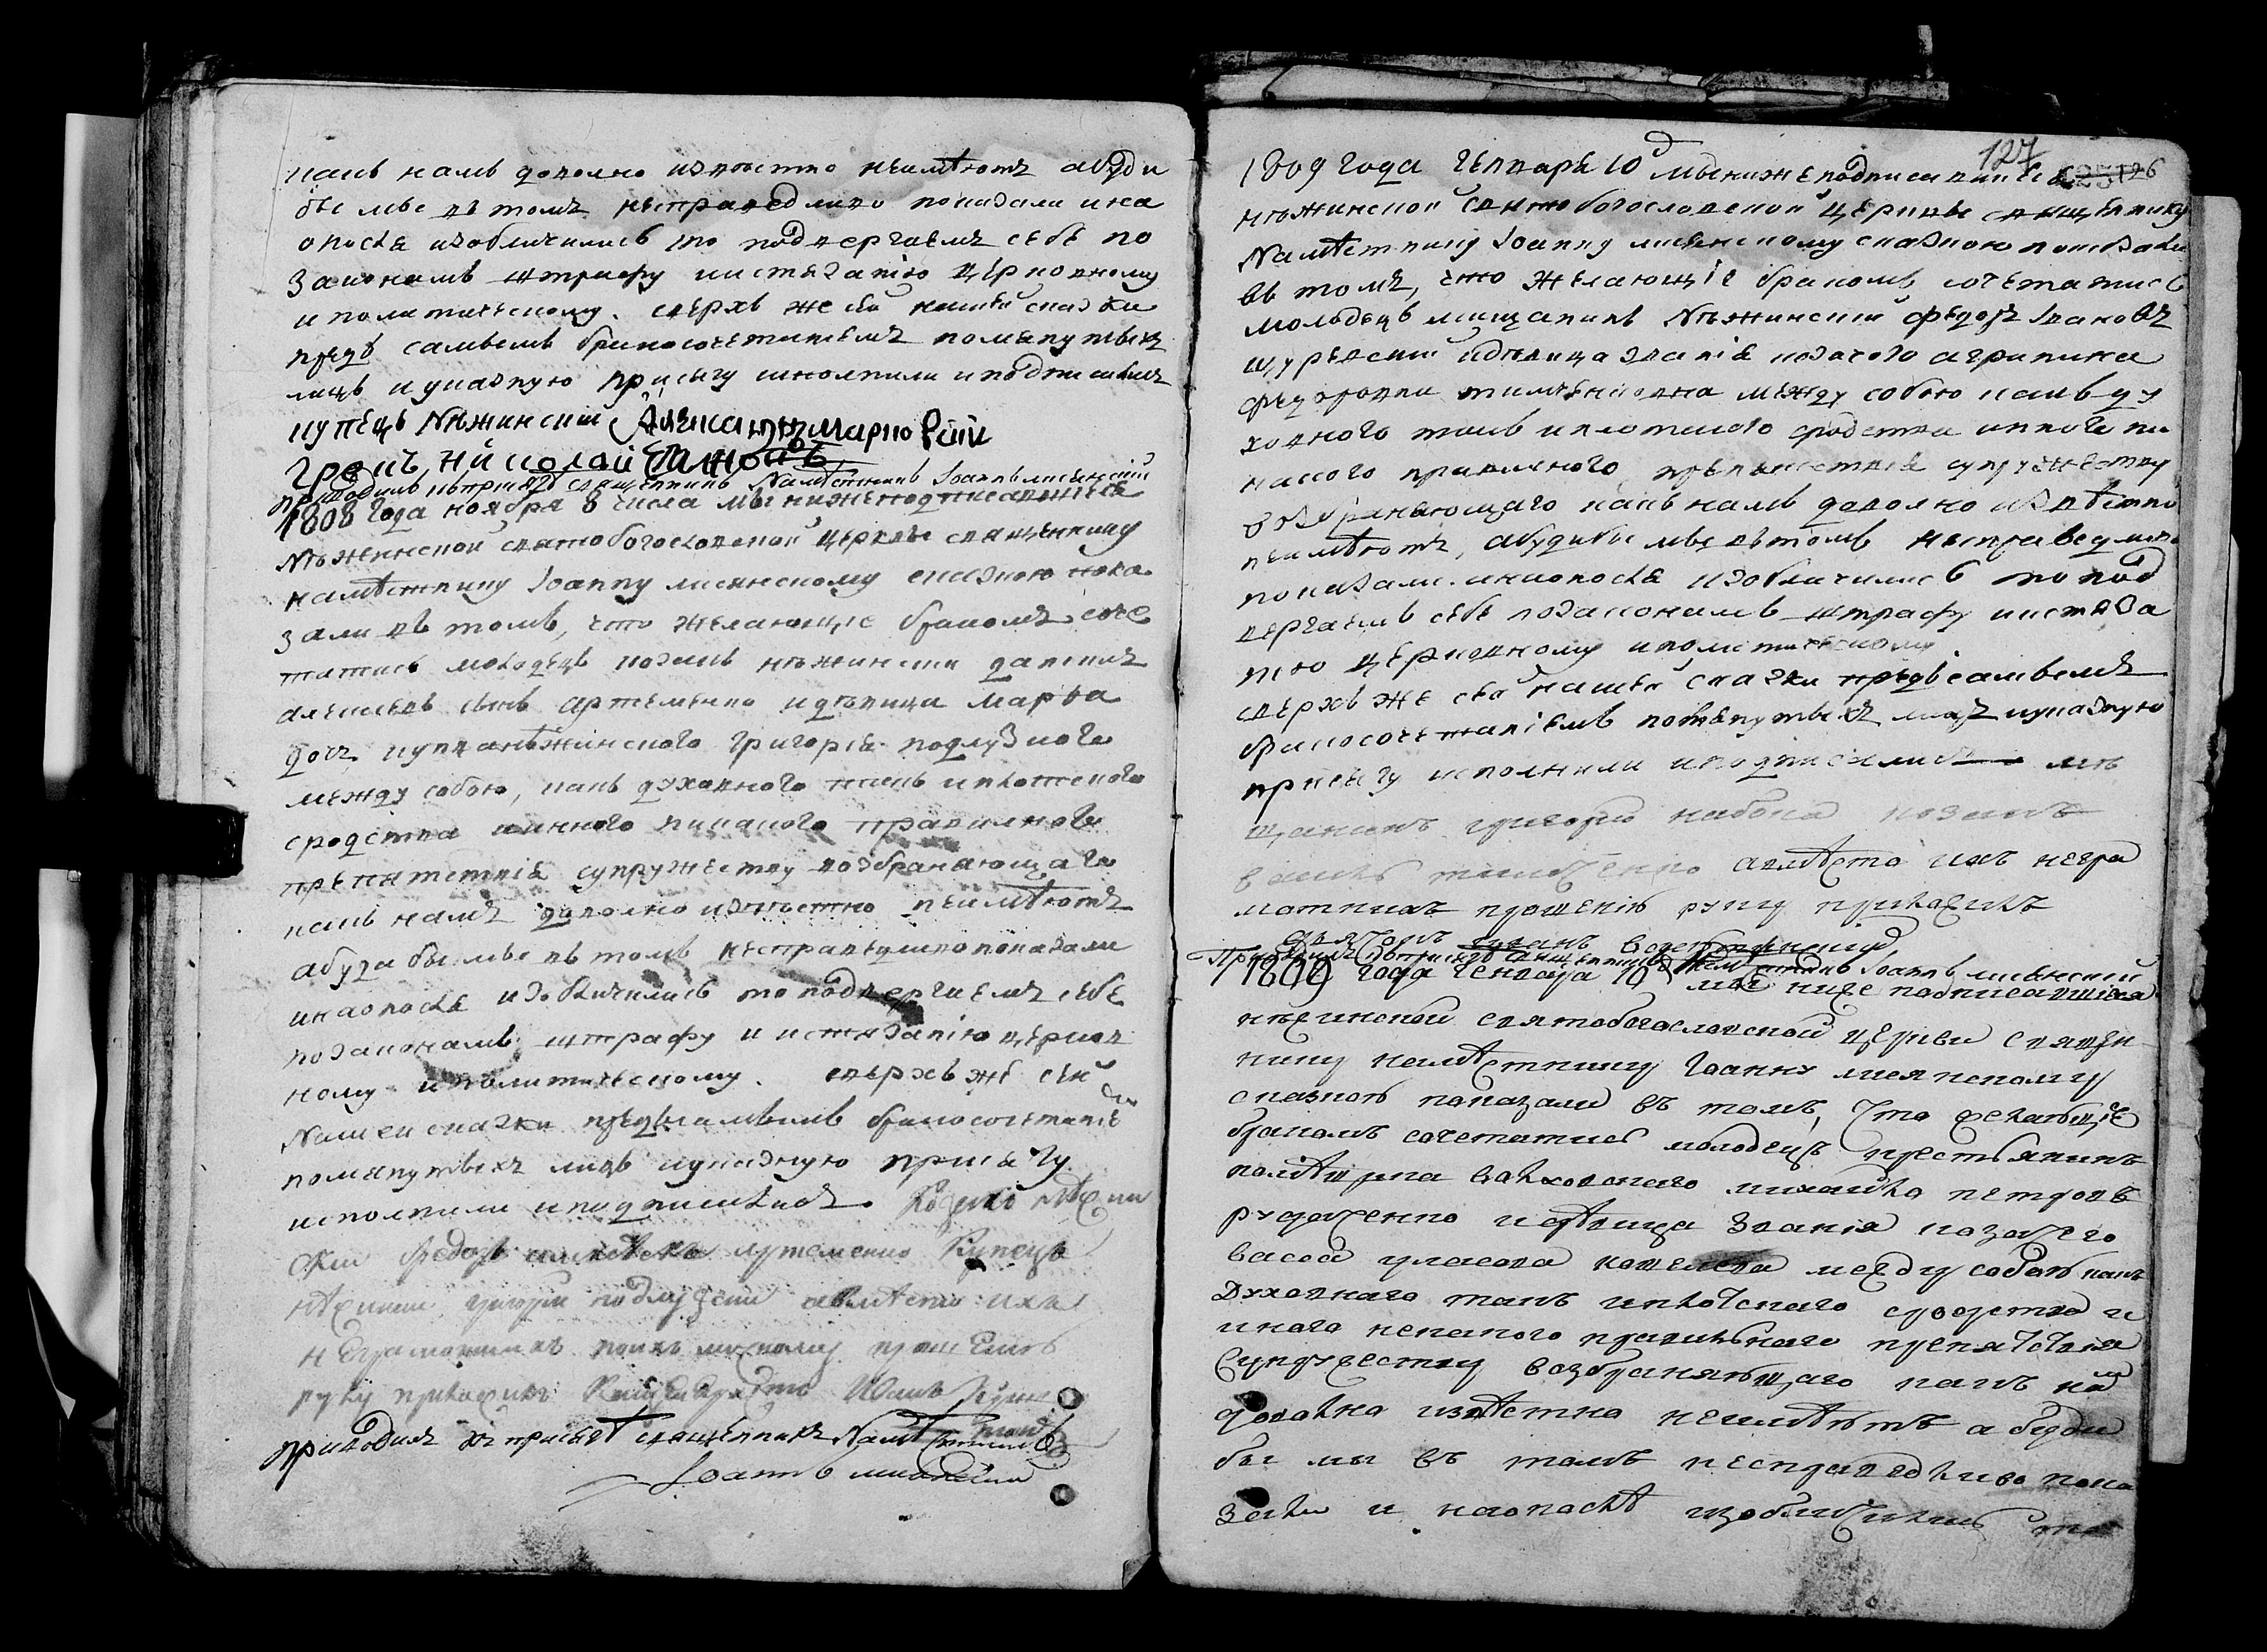 какъ намъ доволно извѣстно неимѣютъ абуди
бы мы въ томъ несправедливо показали ина
опослѣ изобличились то подвергаемъ себе по
законамъ штрафу иистязанію церковному
и политическому. сверхъ же сей нашей сказки
предъ самымъ бракосочетаніемъ помянутыхъ
лицъ иуказную присягу исполнили иподписались
купецъ Нѣжинский
грекъ, Николай
приводилъ къ присягѣ священникъ Намѣстникъ Іоаннъ лисянский
1808 года ноября 8 числа мы нижеподписавшиеся
Нѣжинской святобогословской церкве священнику
намѣстнику Іоанну лисянскому сказкою пока
зали въ томъ, что желающие бракомъ соче
татись молодецъ козакъ нѣжински данилъ
алексѣевъ сынъ артеменко идѣвица марѳа
дочь купцанѣжинского григорія подлузкого
между собою, какъ духовного такъ иплотского
сродства иинного никакого правилного
препятствія супружеству возбраняющаго
какъ намъ доволно извѣстно неимѣютъ
абуди бы мы въ томъ несправедливо показали
инаопослѣ изобличились то подвергаемъ себе
позаконамъ штрафу и истязанію церков
ному иполитическому. сверхъ же сей
нашей сказки предъсамымъ бракосочетаніе
помянутыхъ лицъ иуказную присягу
исполнили иподписались. Козаки нѣжин
ские Федоръ артеменко Купецъ
нѣжинский григорий подлузский авмѣсто ихъ
неграмотныхъ прошенію
руку приложилъ Иванъ
приводилъ къ присягѣ священникъ Намѣстникъ
Іоаннъ лисянский
127
126
1809 года генваря 10 мынижеподписавшиеся
нѣжинской святобогословской церкве священнику
Намѣстнику Іоанну лисянскому сказкою показали
въ томъ, что желающіе бракомъ сочетатись
молодецъ мищанинъ Нѣжинский федоръ Ивановъ
щуревский идѣвица званія козачого агрипина
федоровна тимченковна между собою какъ ду
ховного такъ иплотского сродства инного ни
какого правилного препятствія супружеству
возбраняющаго какъ намъ доволно извѣстно
неимѣютъ, абудибы мы вътомъ несправедливо
показали. инаопослѣ изобличились то под
вергаемъ себе позаконамъ штрафу иистяза
нію церковному иполитическому
сверхъ же сей нашей сказки предъсамымъ
бракосочетаніемъ помянутыхъ лицъ иуказную
присягу исполнили иподписались мѣ
щанинъ григорий набока козакъ
тимченко авмѣсто ихъ негра
мотныхъ прошенію руку приложилъ
дячокъ
Приводилъ къ присягѣ священникъ Намѣстникъ Іоаннъ лисянский
1809 года генваря 10 мы ниже подписавшиеся
нѣжинской святобогословской церкви священ
нику намѣстнику Іоанну лисянскому
сказкою показали въ томъ, что желающіе
бракомъ сочетатись молодецъ крестьянинъ
помѣщика михайло петровъ
рудченко идѣвица званія козачего
васса власова между собою какъ
духовнаго такъ иплотскаго сродства и
инаго некакого правильнаго препятствія
супружеству возбраняющаго какъ намъ
довольно извѣстно неимѣютъ а буди
бы мы въ томъ несправедливо пока
зали и наопослѣ изобличились то